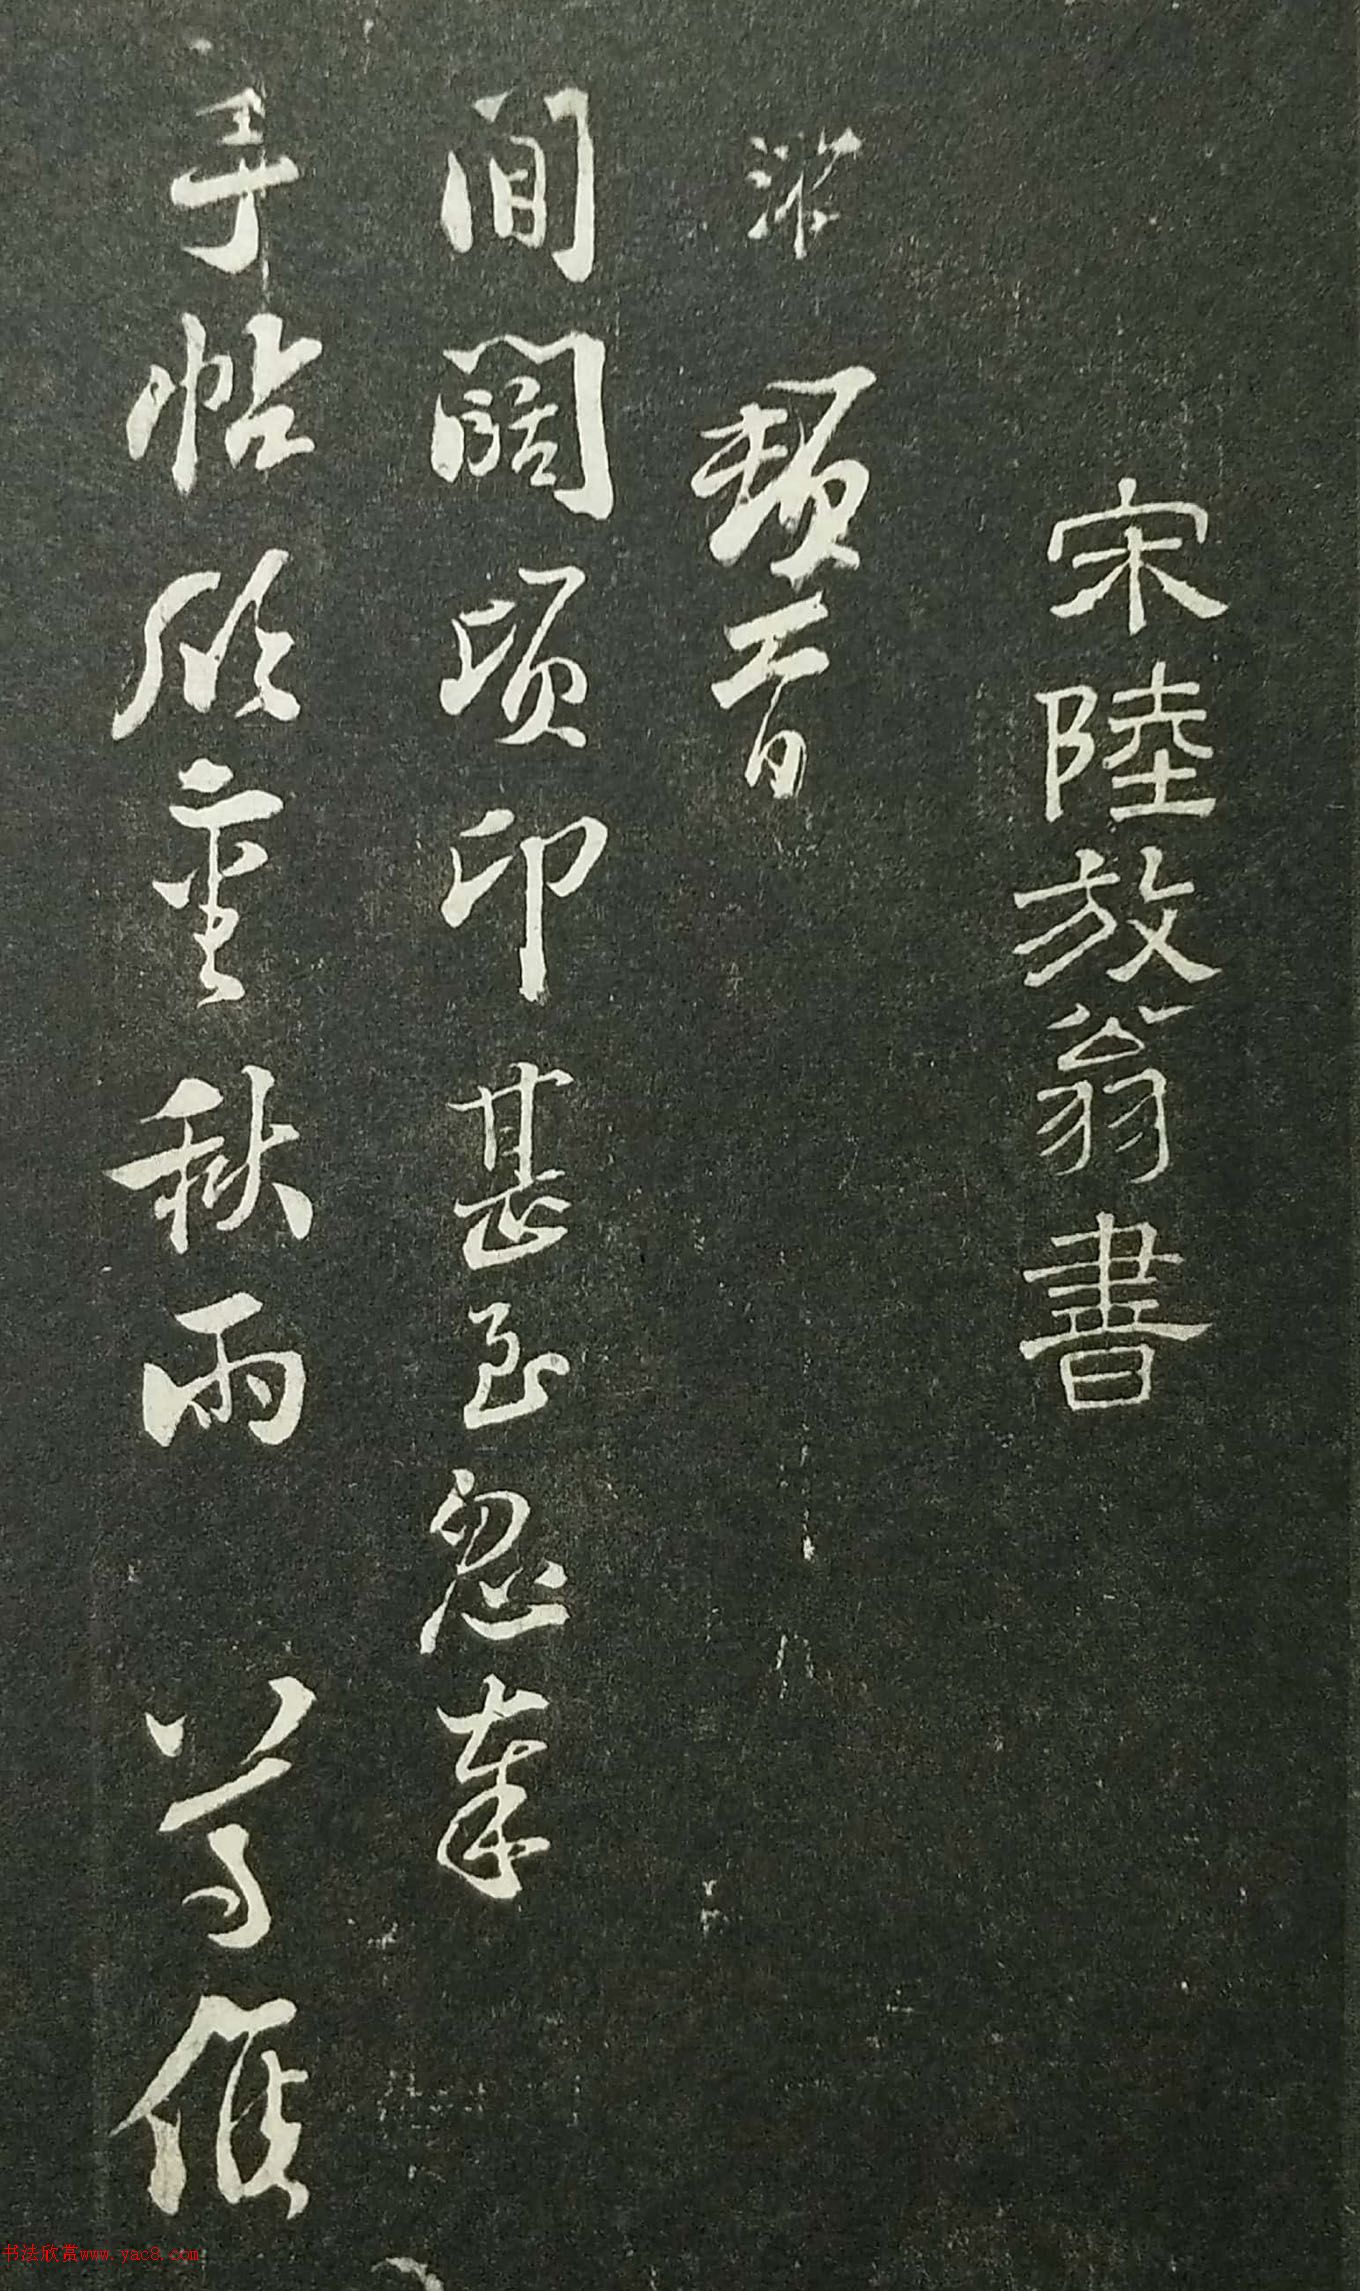 宋陸放翁書
游 頓首
間闊頃卬甚至忽奉
手帖欣重秋雨 尊候
书法欣赏www.yac8.com